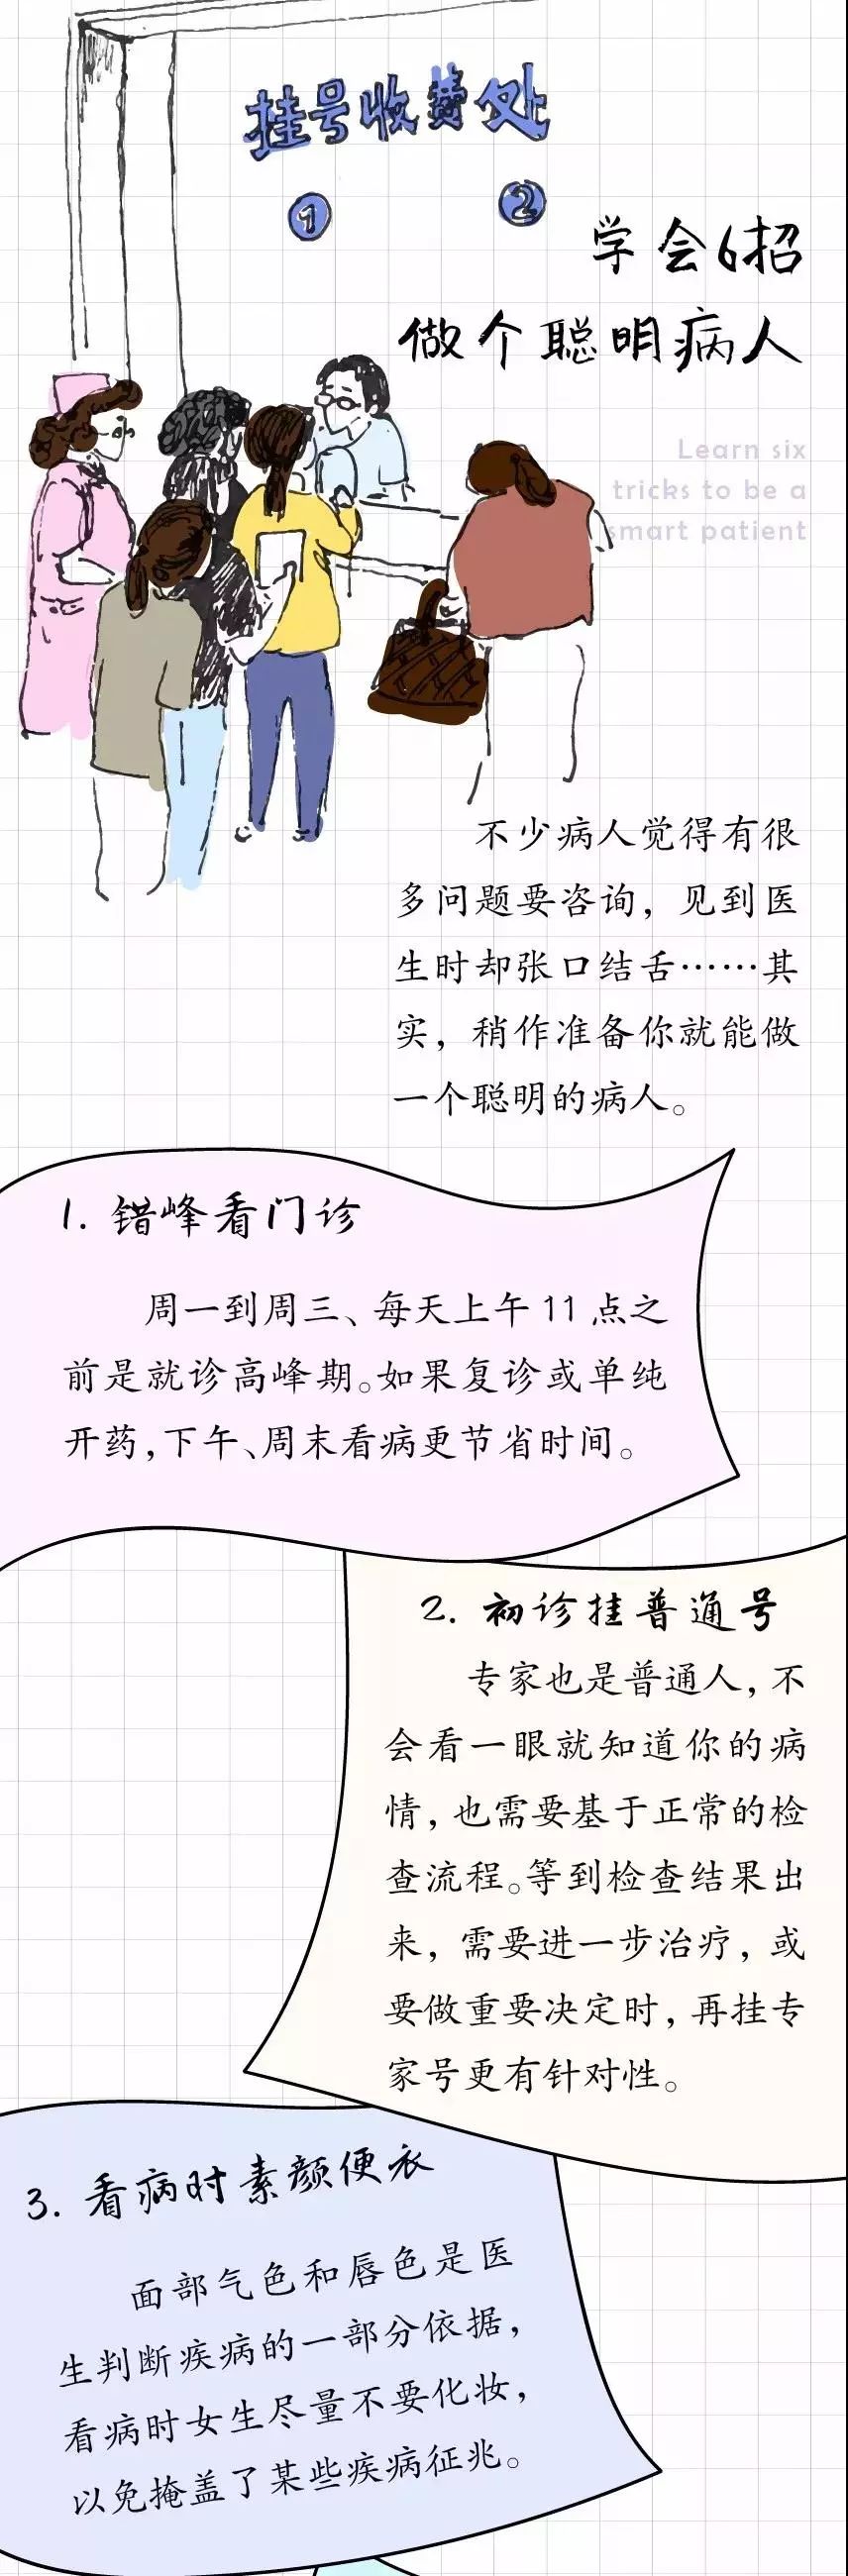 挂号收费处
1 2
学会6招
做个聪明病人
Learn six
tricks to be a
smart patient
不少病人觉得有很
多问题要咨询，见到医
生时却张口结舌……其
实，稍作准备你就能做
一个聪明的病人。
1. 错峰看门诊
周一到周三、每天上午11点之
前是就诊高峰期。如果复诊或单纯
开药，下午、周末看病更节省时间。
2. 初诊挂普通号
专家也是普通人，不
会看一眼就知道你的病
情，也需要基于正常的检
查流程。等到检查结果出
来，需要进一步治疗，或
要做重要决定时，再挂专
家号更有针对性。
3. 看病时素颜便衣
面部气色和唇色是医
生判断疾病的一部分依据，
看病时女生尽量不要化妆，
以免掩盖了某些疾病征兆。